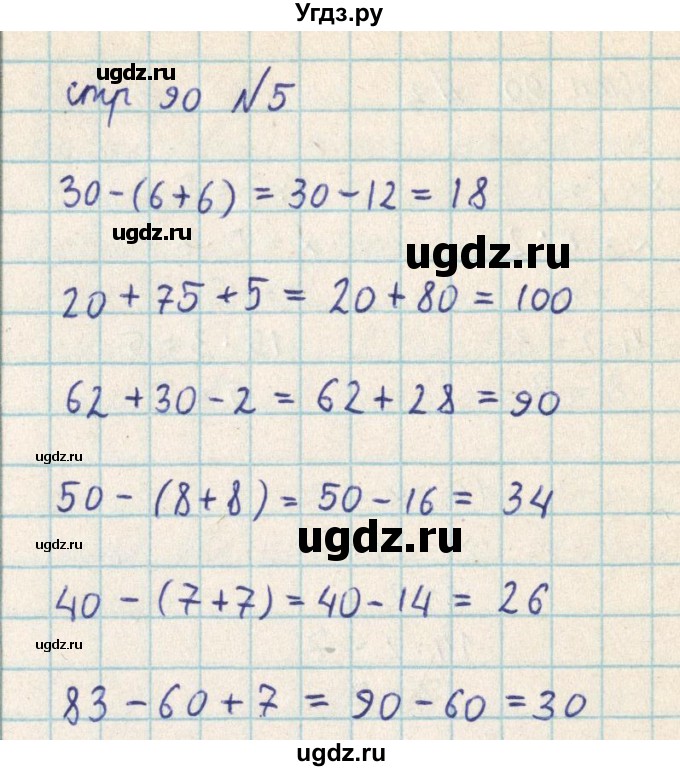 Угдз.ру
ugdz.ru
стр 90 №5
30-(6+6) = 30-12 = 18
ugdz.ru
ugdz.ru
20+75+5 = 20+80 = 100
62+30-2 = 62+28 = 90
ugdz.ru
50-(8+8) = 50-16 = 34
ugdz.ru
ugdz.ru
40-(7+7) = 40-14 = 26
ugdz.ru
83-60+7 = 90-60 = 30
ugdz.ru